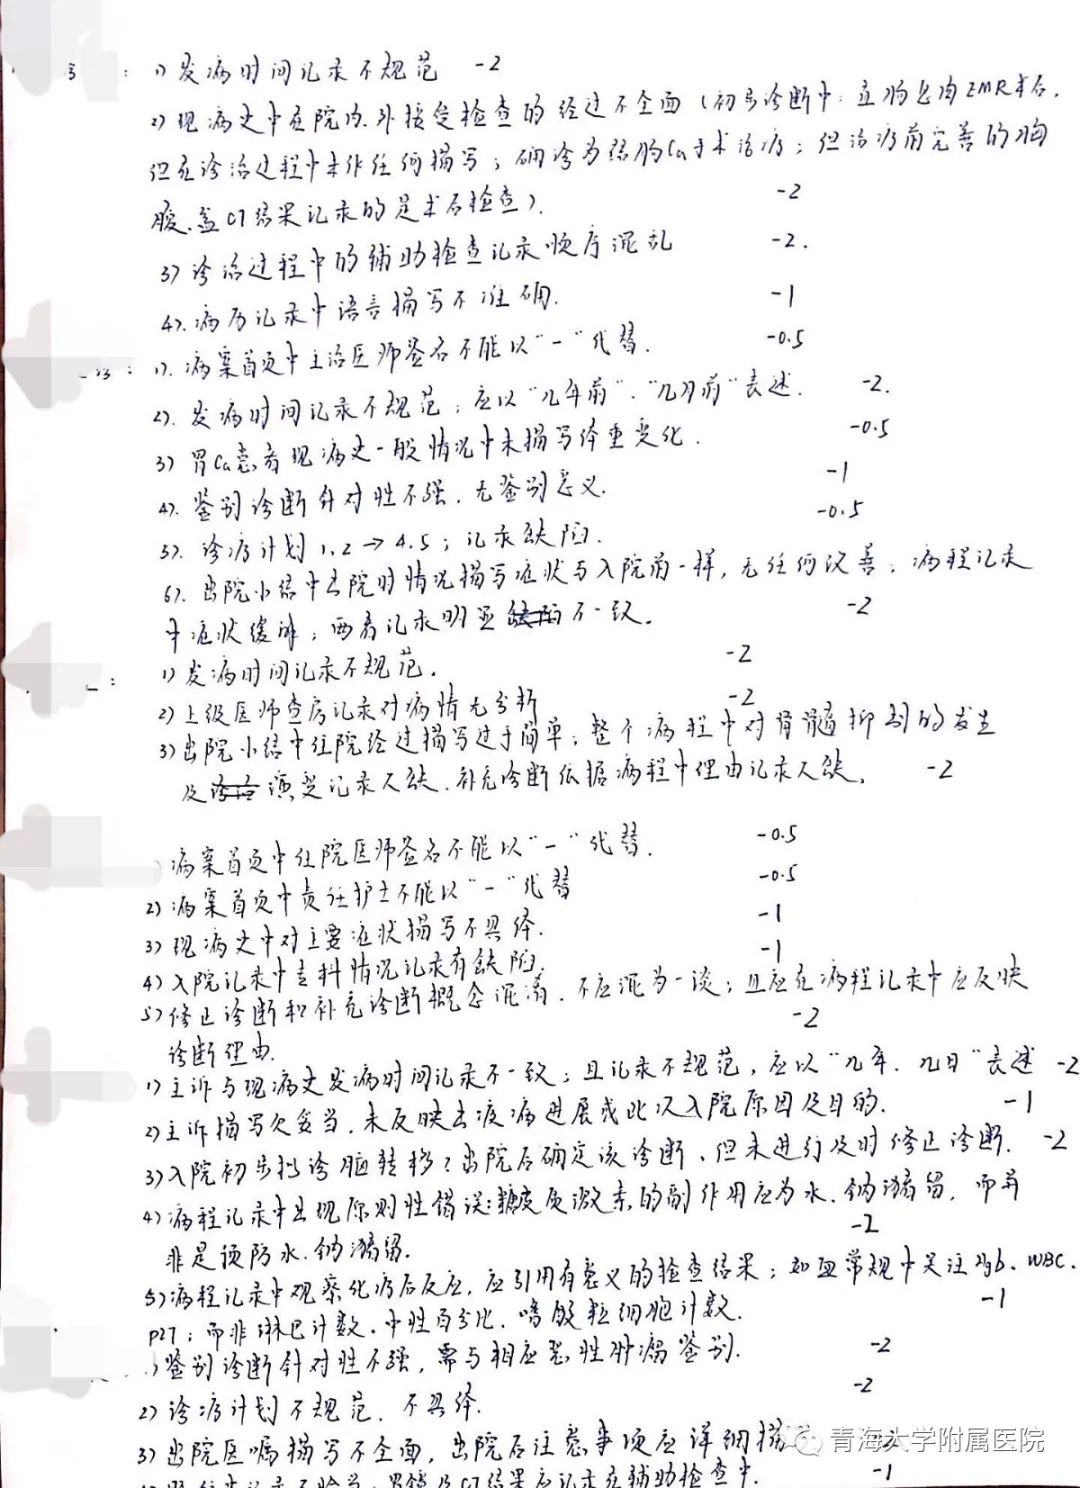 : 1) 发病时间记录不规范 -2
2) 现病史中在院内.外接受检查的经过不全面（初步诊断中:直肠息肉EMR术后，
但在诊治过程中未作任何描写；确诊为结肠Ca手术治疗；但治疗前完善的胸
腹.盆CT结果记录的是术后检查）. -2
3) 诊治过程中的辅助检查记录顺序混乱 -2.
4). 病历记录中语言描写不准确. -1
: 1). 病案首页中主治医师签名不能以“-”代替. -0.5
2). 发病时间记录不规范；应以“几年前”.“几月前”表述. -2.
3) 胃Ca患者现病史一般情况中未描写体重变化. -0.5
4). 鉴别诊断针对性不强.无鉴别意义. -1
5). 诊疗计划 1.2→4.5；记录缺陷. -0.5
6). 出院小结中出院时情况描写症状与入院前一样，无任何改善；病程记录
中症状缓解；两者记录明显不一致. -2
: 1) 发病时间记录不规范. -2
2) 上级医师查房记录对病情无分析 -2
3) 出院小结中住院经过描写过于简单；整个病程中对骨髓抑制的发生
及演变记录欠缺.补充诊断依据病程中理由记录欠缺. -2
) 病案首页中住院医师签名不能以“-”代替. -0.5
2) 病案首页中责任护士不能以“-”代替 -0.5
3) 现病史中对主要症状描写不具体. -1
4) 入院记录中专科情况记录有缺陷. -1
5) 修正诊断和补充诊断概念混淆.不应混为一谈；且应在病程记录中应反映
诊断理由. -2
1) 主诉与现病史发病时间记录不一致；且记录不规范，应以“几年.几日”表述 -2
2) 主诉描写欠妥当.未反映出疾病进展或此次入院原因及目的. -1
3) 入院初步拟诊脑转移？出院后确定该诊断，但未进行及时修正诊断. -2
4) 病程记录中出现原则性错误:糖皮质激素的副作用应为水.钠潴留，而并
非是预防水.钠潴留. -2
5) 病程记录中观察化疗后反应，应引用有意义的检查结果；如血常规中关注Hb.WBC.
PLT；而非淋巴计数.中性百分比.嗜酸粒细胞计数. -1
) 鉴别诊断针对性不强，需与相应恶性肿瘤鉴别. -2
2) 诊疗计划不规范.不具体. -2
3) 出院医嘱描写不全面，出院后注意事项应详细描
青海大学附属医院
CT结果应记录在辅助检查中. -1